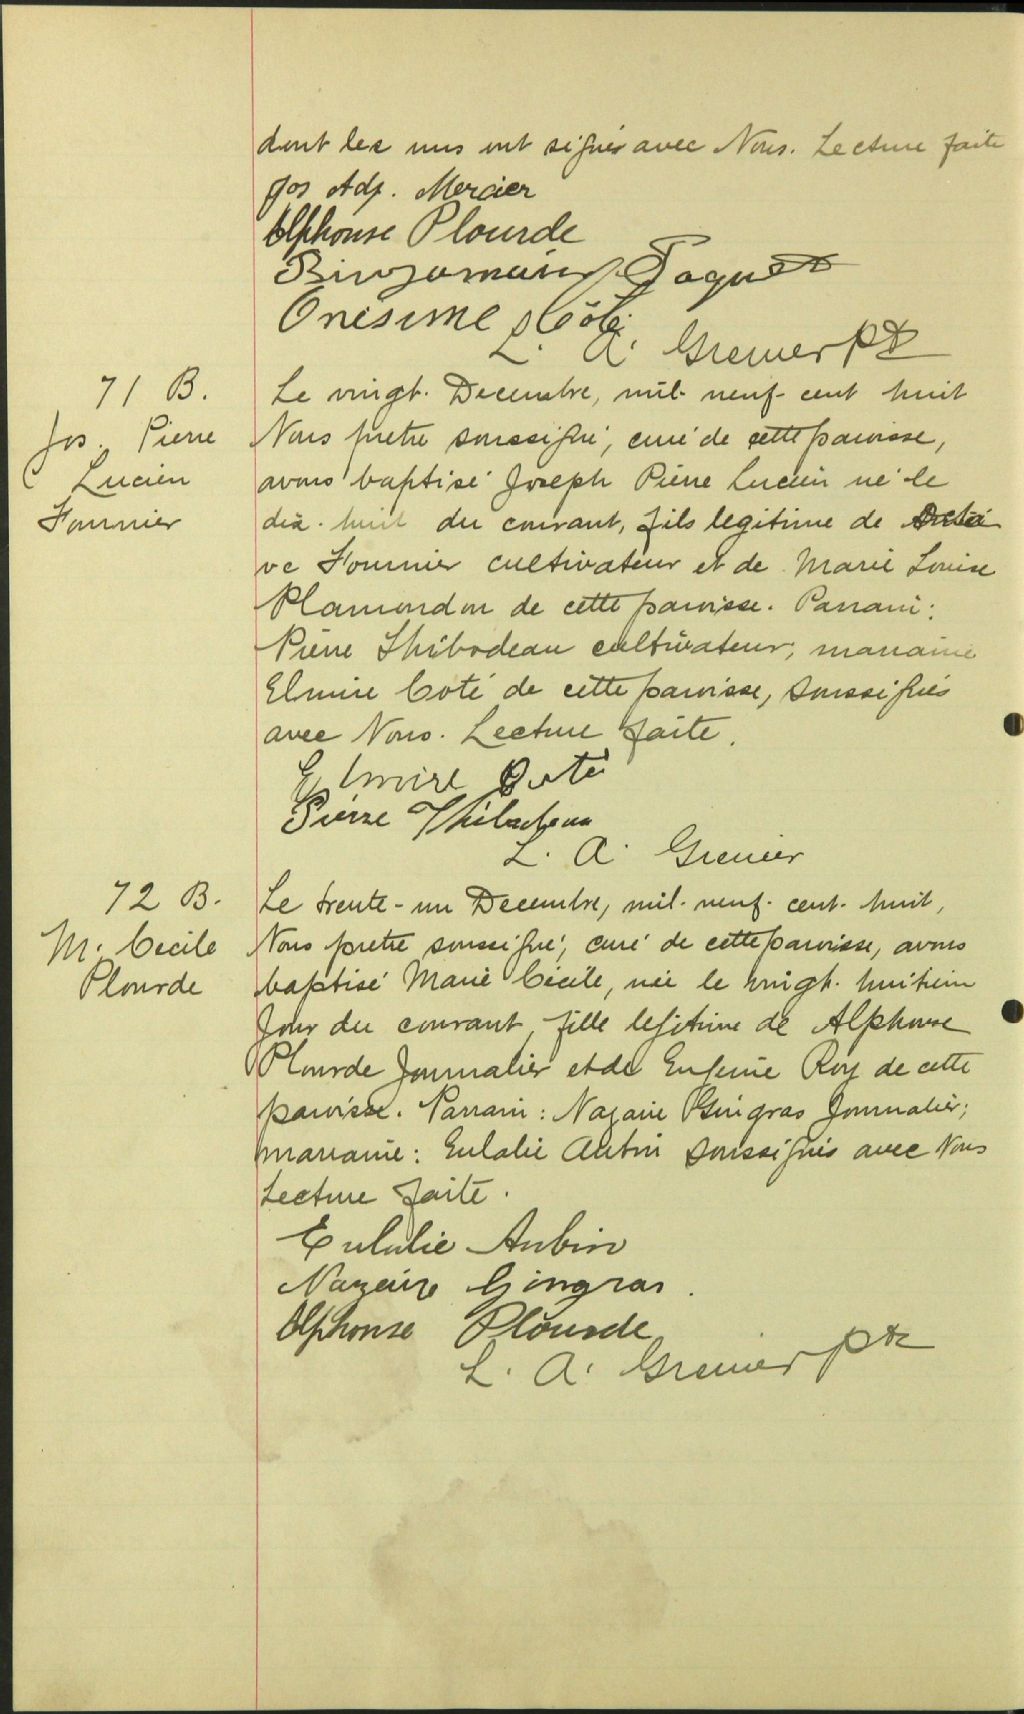 dont les uns ont signés avec Nous. Lecture faite
Jos Adj. Mercier
Alphonse Plourde
Binjamain Paquet
Onésime Côté
L. A. Grenier ptr
71 B.
Jos. Pierre
Lucien
Fournier
Le vingt. Decembre, mil. neuf. cent huit
Nous pretre soussigné, curé de cette paroisse,
avons baptisé Joseph Pierre Lucien né le
dix. huit du courant, fils legitime de
ve Fournier cultivateur et de Marie Louise
Plamondon de cette paroisse. Parrain:
Pierre Thibodeau cultivateur, marraine
Elmire Coté de cette paroisse, soussignés
avec Nous. Lecture faite.
Elmire Coté
Pierre Thibodeau
L. A. Grenier
72 B.
M. Cecile
Plourde
Le trente-un Decembre, mil. neuf. cent. huit,
Nous pretre soussigné, curé de cette paroisse, avons
baptisé Marie Cécile, née le vingt. huitiem
Jour du courant, fille legitime de Alphonse
Plourde Journalier et de Eugenie Roy de cette
paroisse. Parrain: Nazaire Gingras Journalier;
marraine: Eulalie Aubin soussignés avec Nous
Lecture faite.
Eulalie Aubin
Nazaire Gingras.
Alphonse Plourde
L. A. Grenier ptr